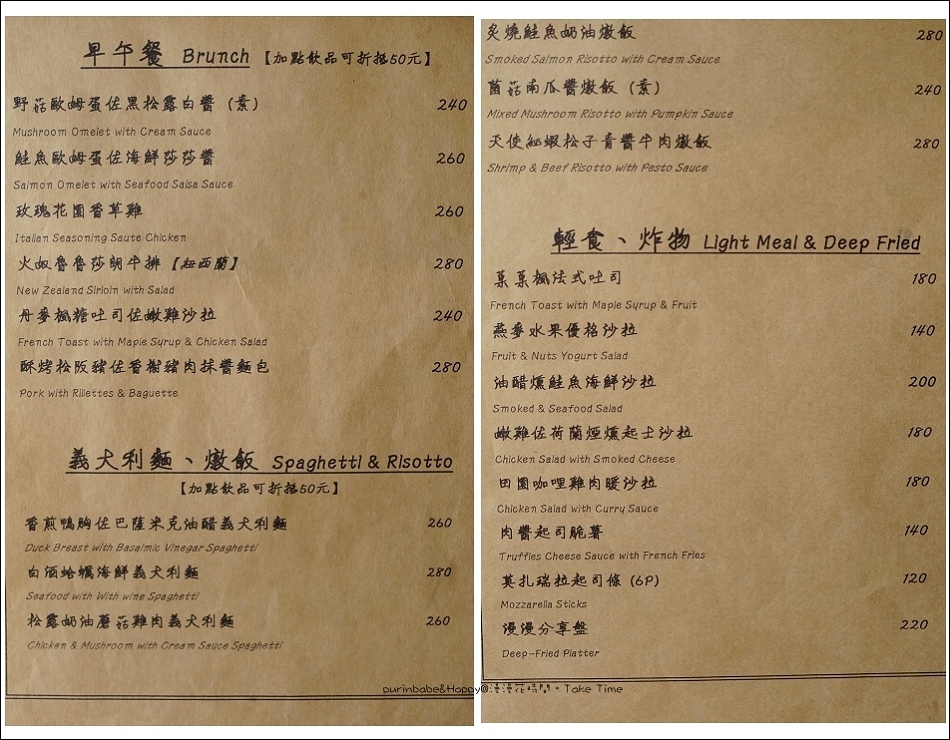 早午餐 Brunch 【加點飲品可折抵50元】
野菇歐姆蛋佐黑松露白醬 (素) 240
Mushroom Omelet with Cream Sauce
鮭魚歐姆蛋佐海鮮莎莎醬 260
Salmon Omelet with Seafood Salsa Sauce
玫瑰花園香草雞 260
Italian Seasoning Saute Chicken
火奴魯魯莎朗牛排【紐西蘭】 280
New Zealand Sirloin with Salad
丹麥楓糖吐司佐嫩雞沙拉 240
French Toast with Maple Syrup & Chicken Salad
酥烤松阪豬佐香榭豬肉抹醬麵包 280
Pork with Rillettes & Baguette
義大利麵、燉飯 Spaghetti & Risotto
【加點飲品可折抵50元】
香煎鴨胸佐巴薩米克油醋義大利麵 260
Duck Breast with Basalmic Vinegar Spaghetti
白酒蛤蠣海鮮義大利麵 280
Seafood with With wine Spaghetti
松露奶油蘑菇雞肉義大利麵 260
Chicken & Mushroom with Cream Sauce Spaghetti
炙燒鮭魚奶油燉飯 280
Smoked Salmon Risotto with Cream Sauce
菌菇南瓜醬燉飯 (素) 240
Mixed Mushroom Risotto with Pumpkin Sauce
天使紅蝦松子青醬牛肉燉飯 280
Shrimp & Beef Risotto with Pesto Sauce
輕食、炸物 Light Meal & Deep Fried
菓菓楓法式吐司 180
French Toast with Maple Syrup & Fruit
燕麥水果優格沙拉 140
Fruit & Nuts Yogurt Salad
油醋燻鮭魚海鮮沙拉 200
Smoked & Seafood Salad
嫩雞佐荷蘭煙燻起士沙拉 180
Chicken Salad with Smoked Cheese
田園咖哩雞肉暖沙拉 180
Chicken Salad with Curry Sauce
肉醬起司脆薯 140
Truffles Cheese Sauce with French Fries
莫扎瑞拉起司條 (6P) 120
Mozzarella Sticks
漫漫分享盤 220
Deep-Fried Platter
purinbabe&Happy@漫漫花時間。Take Time